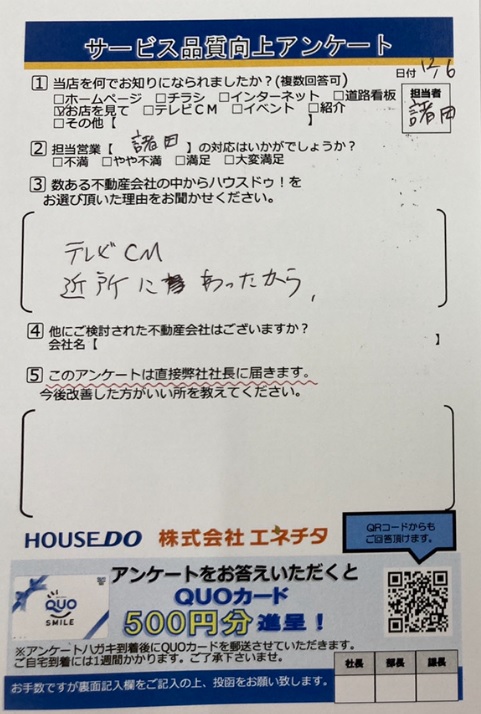 サービス品質向上アンケート
日付 12/6
1 当店を何でお知りになられましたか?(複数回答可)
□ホームページ □チラシ □インターネット □道路看板
☑お店を見て □テレビCM □イベント □紹介
□その他【 】
担当者
諸田
2 担当営業【 諸田 】の対応はいかがでしょうか?
□不満 □やや不満 □満足 □大変満足
3 数ある不動産会社の中からハウスドゥ!を
お選び頂いた理由をお聞かせください。
テレビCM
近所に あったから,
4 他にご検討された不動産会社はございますか?
会社名【 】
5 このアンケートは直接弊社社長に届きます。
今後改善した方がいい所を教えてください。
HOUSEDO 株式会社 エネチタ
QRコードからも
ご回答頂けます。
アンケートをお答えいただくと
QUOカード
500円分進呈!
QUO
SMILE
※アンケートハガキ到着後にQUOカードを郵送させていただきます。
ご自宅到着には1週間かかります。ご了承下さいませ。
社長 部長 課長
お手数ですが裏面記入欄をご記入の上、投函をお願い致します。